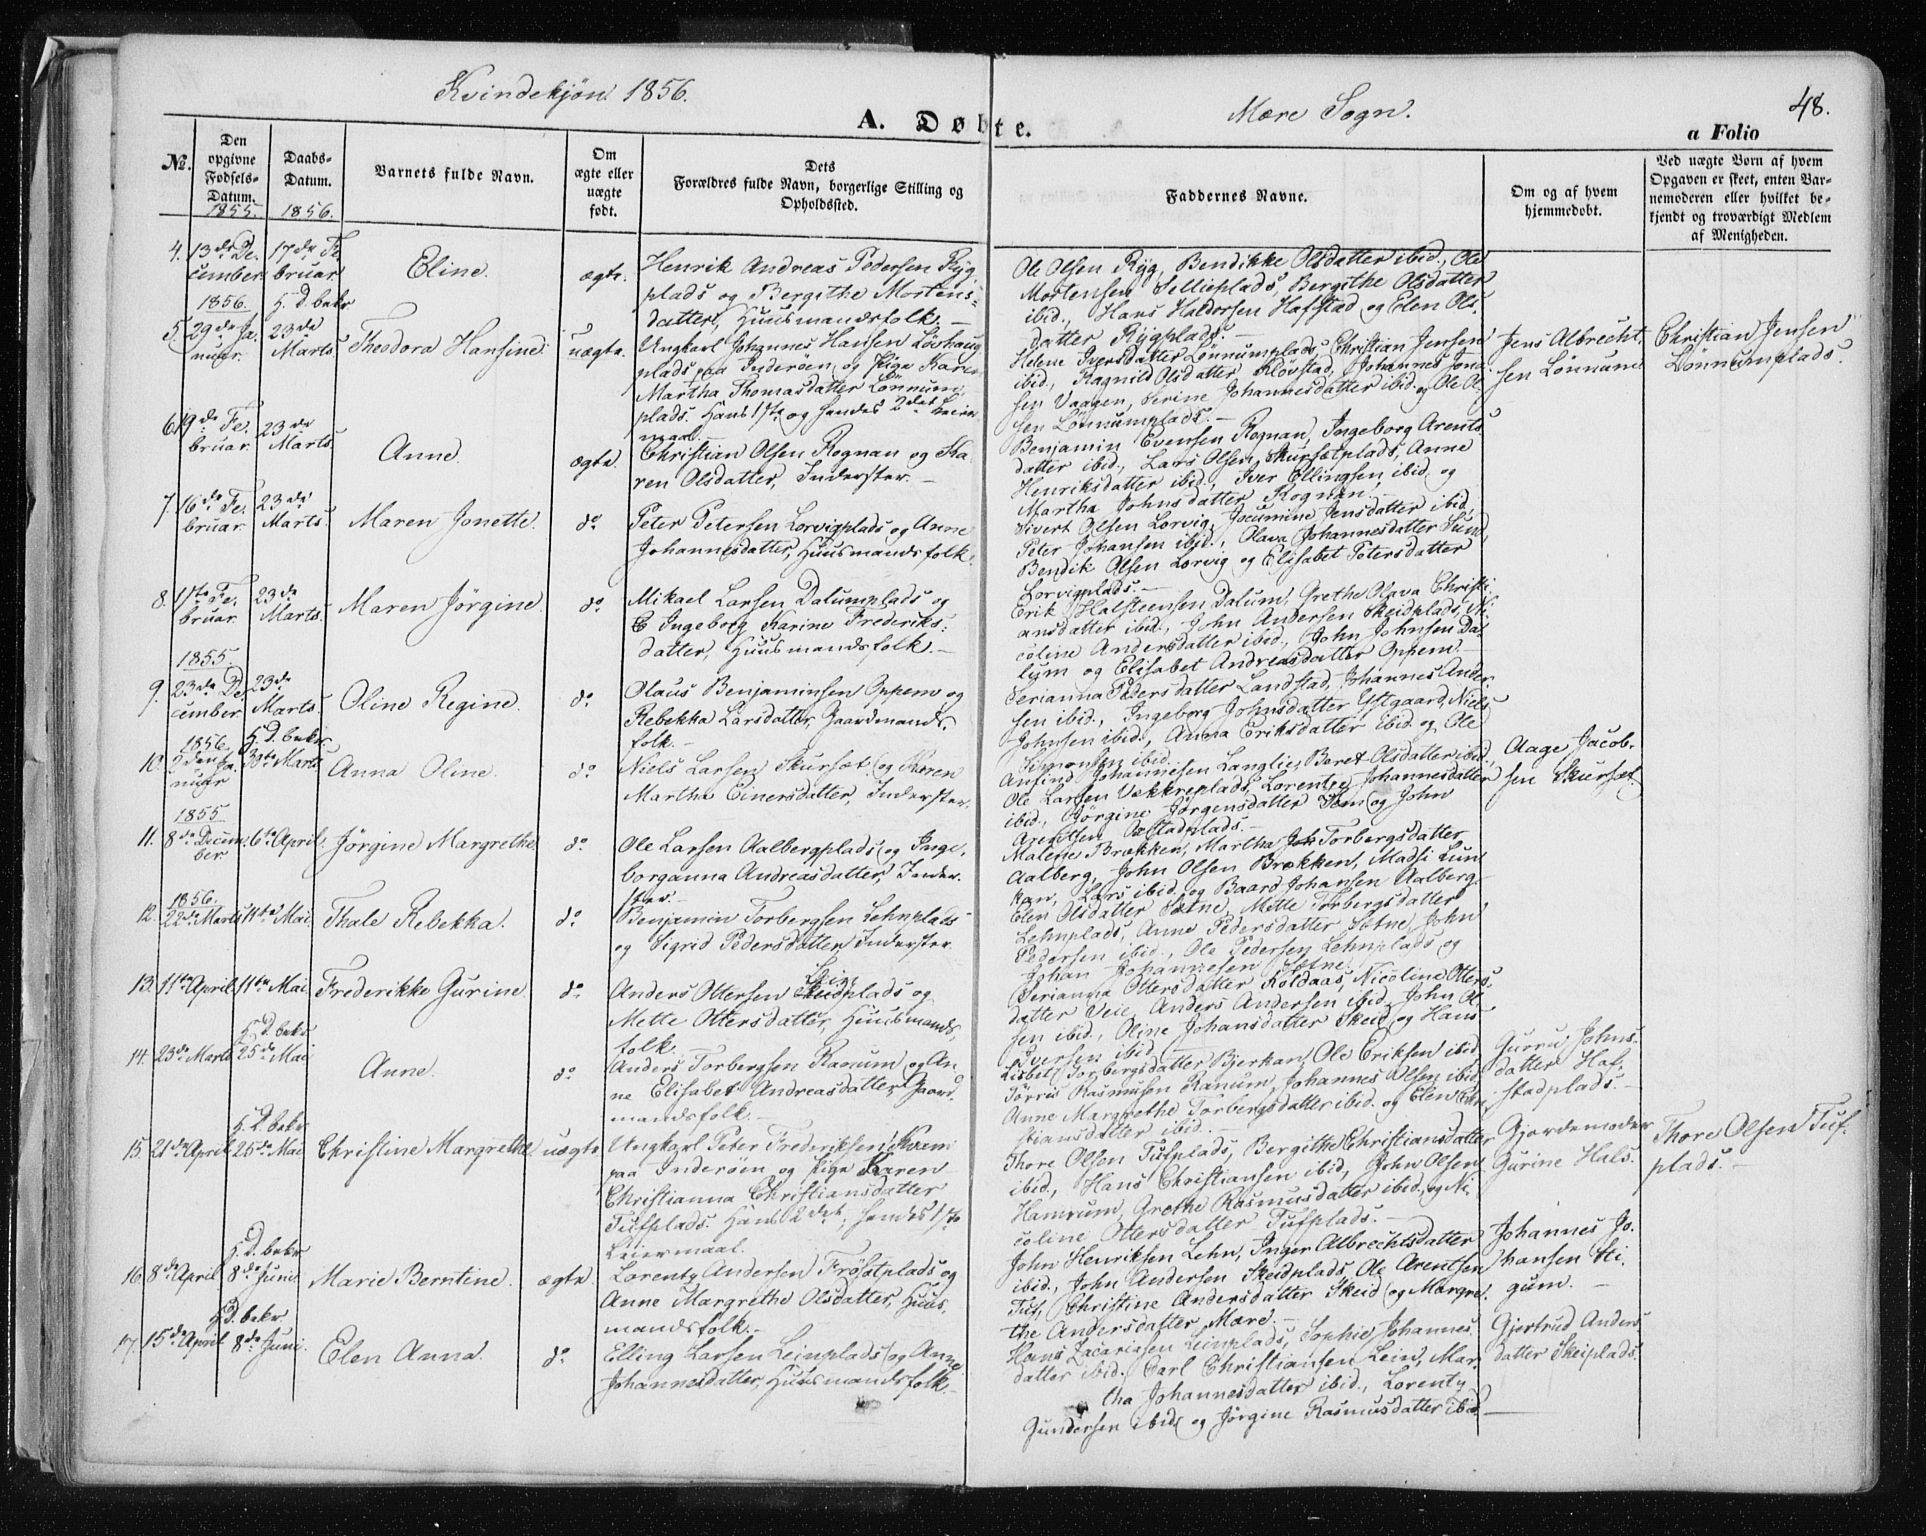 Kvindekjøn 1856.
Mære Sogn.
48.
A. Døbte.
a Folio
№.
Den opgivne Fødsels-Datum.
Daabs-Datum.
Barnets fulde Navn.
Om ægte eller uægte født.
Dets Forældres fulde Navn, borgerlige Stilling og Opholdssted.
Faddernes Navne.
Om og af hvem hjemmedøbt.
Ved uægte Børn af hvem Opgaven er skeet, enten Barnemoderen eller hvilket bekjendt og troværdigt Medlem af Menigheden.
1855.
1856.
4. 13de De-
cember
17de Fe-
bruar
Eline.
ægte.
Henrik Andreas Pedersen Ryg-
plads og Bergithe Mortens-
datter, Huusmandsfolk. —
Ole Olsen Ryg, Bendikke Olsdatter ibid., Ole
Mortensen Sellieplads, Bergithe Olsdatter
ibid., Hans Haldorsen Hafstad og Elen Ols-
datter Rygplads. —
1856.
H. D. bekr.
5. 29de Ja-
nuar.
23de
Marts
Theodora Hansine.
uægte.
Ungkarl Johannes Hansen Lorhaug-
plads paa Inderøen og Pige Karen
Martha Thomasdatter Lønnum-
plads. Hans 1ste og hendes 2det Leier-
maal.
Helene Iversdatter Lønnumplads, Christian Jensen
ibid., Ragnild Olsdatter Kløvstad, Johannes Jon-
sen Vaagen, Serine Johannesdatter ibid. og Ole Ol-
sen Lønnumplads. —
Jens Albrecht-
sen Lønnum
Christian Jensen
Lønnumplads.
6. 19de Fe-
bruar.
23de
Marts.
Anne.
ægte.
Christian Olsen Rognan og Ka-
ren Olsdatter, Inderster. —
Benjamin Evensen Rognan, Ingeborg Arents-
datter ibid., Lars Olsen Skursætplads, Anne
Henriksdatter ibid., Iver Ellingsen ibid. og
Martha Johnsdatter Rognan.
7. 16de Fe-
bruar.
23de
Marts.
Maren Jonette.
do.
Peter Petersen Lorvigplads og Anne
Johannesdatter, Huusmandsfolk.
Sivert Olsen Lorvig, Jocumine Jensdatter ibid.,
Peter Johansen ibid., Olava Johannesdatter Sund,
Bendik Olsen Lorvig og Elisabet Petersdatter
Lorvigplads. —
8. 17de Fe-
bruar.
23de
Marts.
Maren Jørgine
do.
Mikael Larsen Dalumplads og
Ingeborg Karine Frederiks-
datter, Huusmandsfolk. —
Erik Halsteensen Dalum, Grethe Olava Christi-
ansdatter ibid., John Andersen Skeidplads, Ni-
coline Andersdatter ibid., John Johnsen Da-
lum og Elisabet Andreasdatter Oppem. —
1855
9. 23de De-
cember
23de
Marts.
Oline Regine.
do.
Olaus Benjaminsen Oppem og
Rebekka Larsdatter, Gaardmands-
folk. —
Serianna Pedersdatter Landstad, Johannes Ander-
sen ibid., Ingeborg Johnsdatter Ystgaard, Niels
Johnsen ibid., Anna Eriksdatter ibid. og Ole
Simonsen ibid.
1856.
H. D. bekr.
10. 2den Ja-
nuar
30te Marts
Anna Oline.
do.
Niels Larsen Skursæt og Karen
Martha Einersdatter, Inderster.
Arfind Johannesen Langlie, Beret Olsdatter ibid.,
Ole Larsen Vækkreplads, Lorentze Johannesdatter
ibid., Jørgine Jørgensdatter Vem og John
Arentsen Østadplads. —
Aage Jacob-
sen Skursæt.
1855
11. 8de Decem-
ber
6te April.
Jørgine Margrethe.
do.
Ole Larsen Aalbergplads og Inge-
borganna Andreasdatter, Inder-
ster. —
Malene Brækken, Martha Torbergsdatter
Aalberg, John Olsen Brækken, Madsi Lun-
kan, Lars ibid. og Baard Johansen Aalberg.
1856.
12. 22de Marts
11te Mai.
Thale Rebekka.
do.
Benjamin Torbergsen Lehnplads
og Sigrid Pedersdatter Inderster.
Elen Olsdatter Sætne, Mette Torbergsdatter
Lehnplads, Anne Pedersdatter Sætne, John
Pedersen ibid., Ole Pedersen Lehnplads og
Johan Johannesen Sætne.
13. 11te April
11te Mai.
Frederikke Gurine.
do.
Anders Ottersen Leinplads og
Mette Ottersdatter, Huusmands-
folk.
Serianna Ottersdatter Koldaas, Nicoline Otters-
datter Veie, Anders Andersen ibid., John Ol-
sen ibid., Oline Johansdatter Skeid og Hans
Iversen ibid.
H. D. bekr.
14. 23de Marts
25de Mai
Anne.
do.
Anders Torbergsen Ranum og An-
ne Elisabet Andreasdatter, Gaard-
mandsfolk. —
Lisbet Torbergsdatter Bjerkan, Ole Eriksen ibid.,
Tørris Rasmusen Ranum, Johannes Olsen ibid.,
Anne Margrethe Torbergsdatter ibid. og Elen Chri-
stiansdatter ibid. —
Gurru Johns-
datter Haf-
stadplads. —
H. D. bekr.
15. 21de April
25de Mai
Christine Margrethe
uægte
Ungkarl Peter Frederiksen Kvam
paa Inderøen og Pige Karen
Christianna Christiansdatter
Tufplads. Hans 2det, hendes 1ste
Leiermaal.
Thore Olsen Tufplads, Bergithe Christiansdatter
ibid., Hans Christiansen ibid., John Olsen
Hamrum, Grethe Rasmusdatter ibid. og Ni-
coline Ottersdatter Tufplads. —
Gjordemoder
Gurine Hals.
Thore Olsen Tuf-
plads. —
H. D. bekr.
16. 8de April
8de Juni.
Marie Berntine.
ægte.
Lorentz Andersen Frøsetplads og
Anne Margrethe Olsdatter, Huus-
mandsfolk. —
John Henriksen Lehn, Inger Albrechtsdatter
ibid., John Andersen Skeidplads, Ole Arentsen
Tuf, Christine Andersdatter Skeid og Margre-
the Andersdatter Mære. —
Johannes Jo-
hansen Sti-
gum. —
H. D. bekr.
17. 15de April
8de Juni.
Elen Anna.
do.
Elling Larsen Leinplads og Anne
Johannesdatter, Huusmandsfolk. —
Hans Zacariasen Leinplads, Sophie Johannes-
datter ibid., Carl Christiansen Lein, Mar-
tha Johannesdatter ibid., Lorentz
Gundersen ibid. og Jørgine Rasmusdatter ibid. —
Gjertrud Anders-
datter Skeiplads.